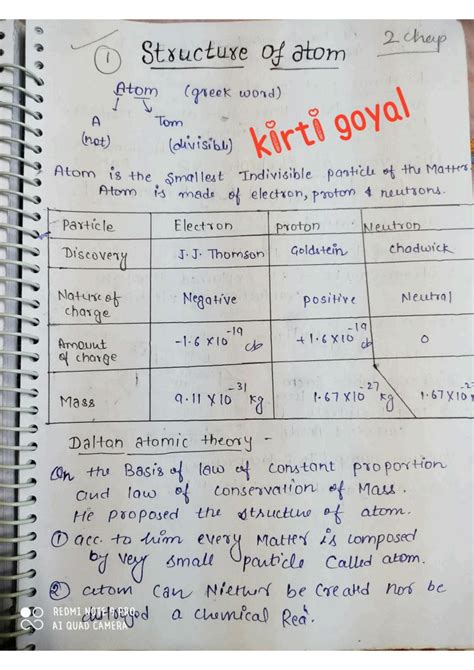 2 chap
① Structure of atom
Atom (greek word)
A Tom
(not) (divisible)
kirti goyal
Atom is the smallest Indivisible particle of the Matter
Atom is made of electron, proton & neutrons.
Particle Electron proton Neutron
Discovery J.J. Thomson Goldstein chadwick
Nature of charge Negative positive Neutral
Amount of charge -1.6 x 10^-19 cb +1.6 x 10^-19 cb 0
Mass 9.11 x 10^-31 kg 1.67 x 10^-27 kg 1.67 x 10
Daltan atomic theory -
On the Basis of law of constant proportion
and law of conservation of Mass.
He proposed the structure of atom.
① acc. to him every Matter is composed
by very small particle called atom.
② atom can Niether be Created nor be
a chemical Rea.
REDMI NOTE 8 PRO
AI QUAD CAMERA